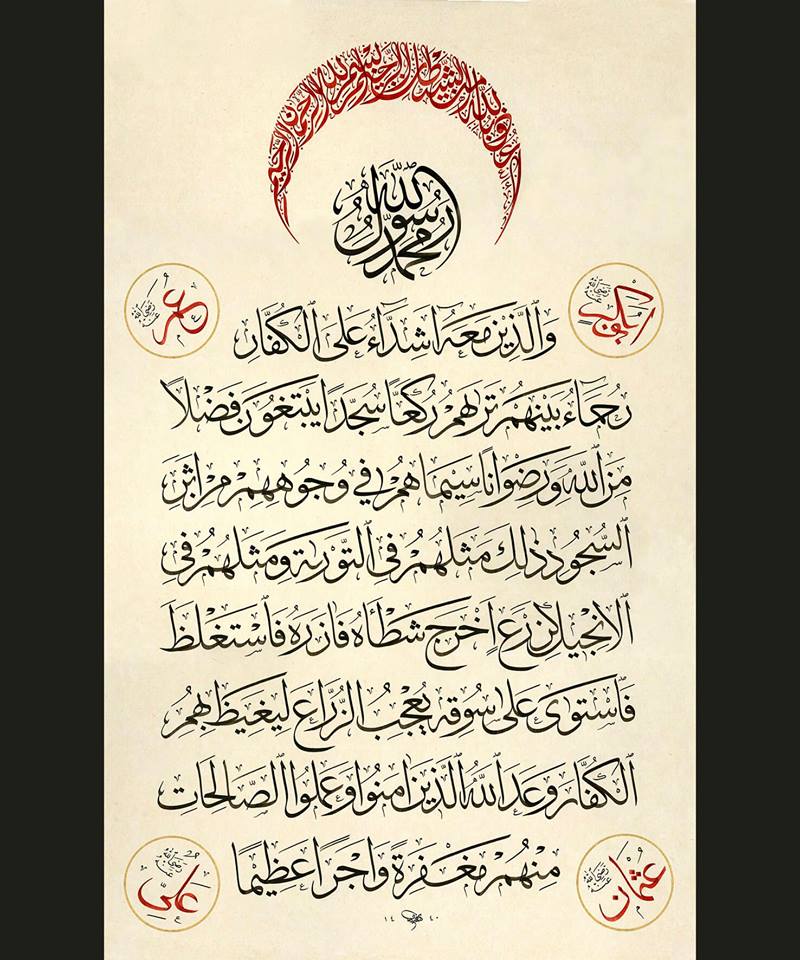 أعوذ بالله من الشيطان الرجيم بسم الله الرحمن الرحيم
محمد رسول الله
ابوبكر رضي الله عنه
عمر رضي الله عنه
وَالَّذِينَ مَعَهُ اَشِدَّآءُ عَلَى الْكُفَّارِ
رُحَمَآءُ بَيْنَهُمْ تَرٰيهُمْ رُكَّعًا سُجَّدًا يَبْتَغُونَ فَضْلًا
مِنَ اللّٰهِ وَرِضْوَانًا سِيمَاهُمْ فِي وُجُوهِهِمْ مِنْ اَثَرِ
السُّجُودِ ذٰلِكَ مَثَلُهُمْ فِي التَّوْرٰيةِ وَمَثَلُهُمْ فِي
الْاِنْجِيلِ كَزَرْعٍ اَخْرَجَ شَطْأَهُ فَاٰزَرَهُ فَاسْتَغْلَظَ
فَاسْتَوٰى عَلٰى سُوقِهِ يُعْجِبُ الزُّرَّاعَ لِيَغِيظَ بِهِمُ
الْكُفَّارَ وَعَدَ اللّٰهُ الَّذِينَ اٰمَنُوا وَعَمِلُوا الصَّالِحَاتِ
مِنْهُمْ مَغْفِرَةً وَاَجْرًا عَظِيمًا
عثمان رضي الله عنه
علي رضي الله عنه
١٤ ٤٠